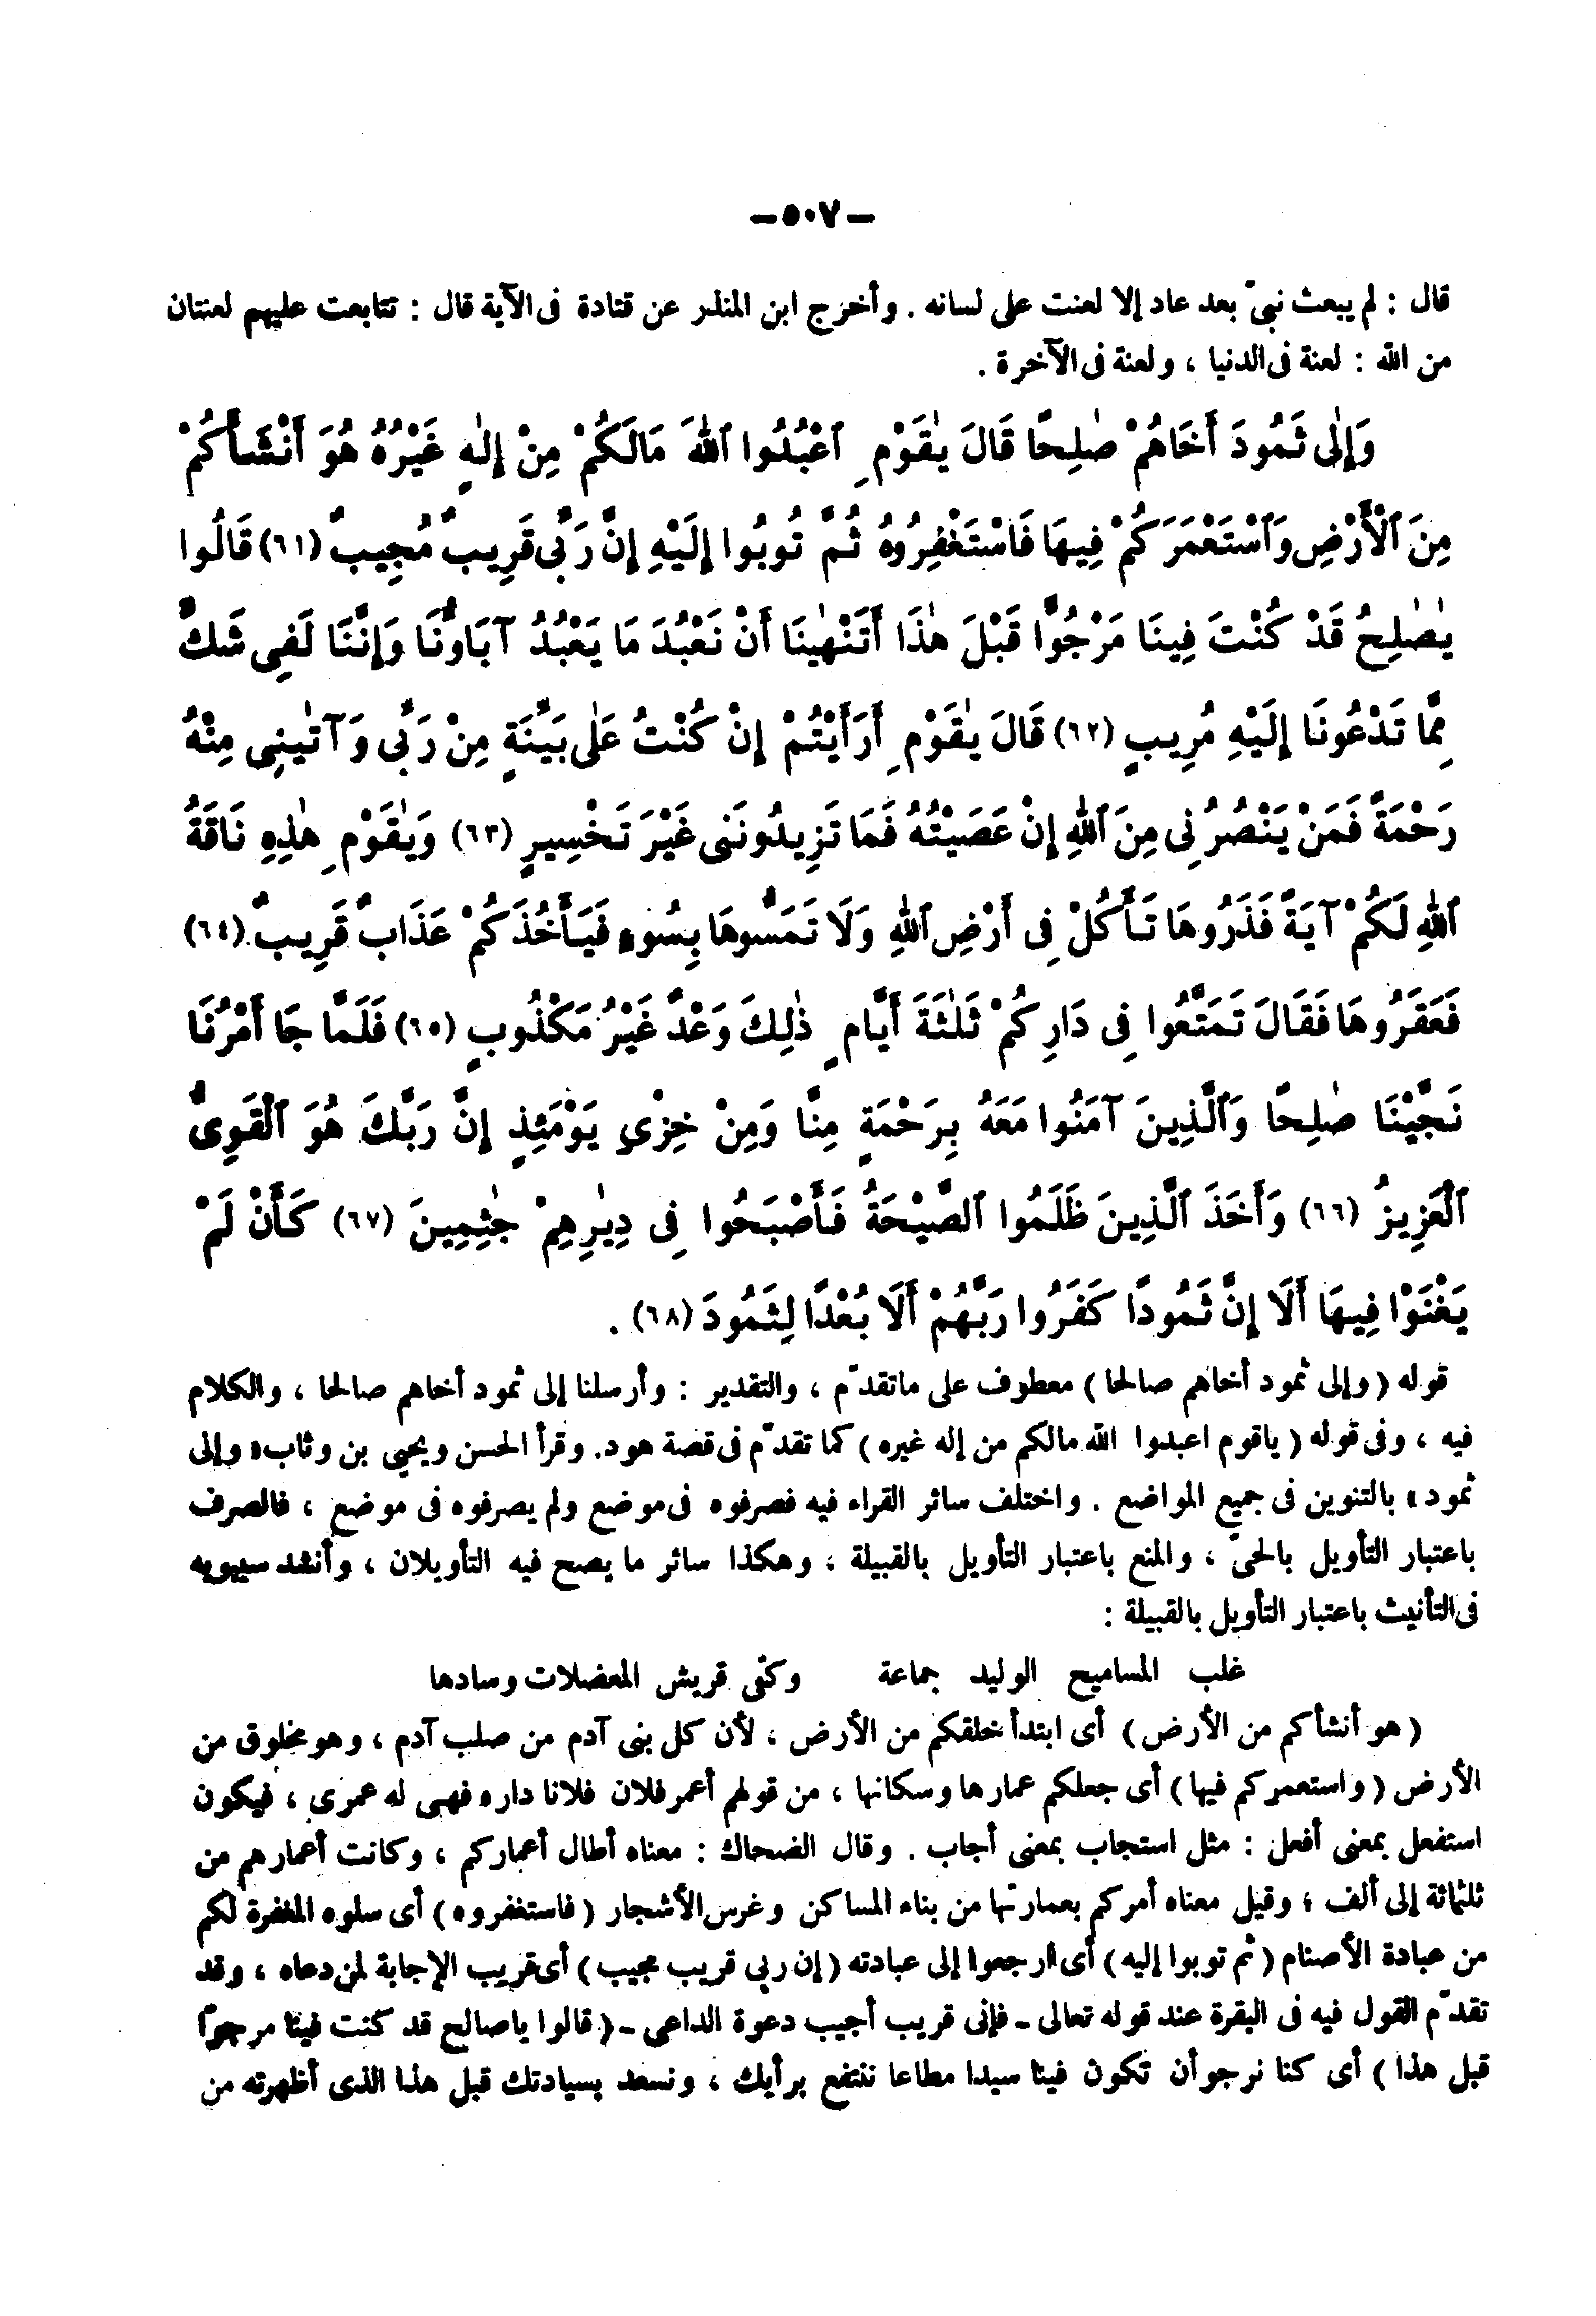 -٥٠٧-
قال : لم يبعث نبىّ بعد عاد إلا لعنت على لسانه . وأخرج ابن المنذر عن قتادة فى الآية قال : تتابعت عليهم لعنتان
من الله : لعنة فى الدنيا ، ولعنة فى الآخرة .
وَإِلٰى ثَمُودَ أَخَاهُمْ صٰلِحًا قَالَ يٰقَوْمِ ٱعْبُدُوا ٱللّٰهَ مَالَكُمْ مِنْ إِلٰهٍ غَيْرُهُ هُوَ أَنْشَأَكُمْ
مِنَ ٱلْأَرْضِ وَٱسْتَعْمَرَكُمْ فِيهَا فَاسْتَغْفِرُوهُ ثُمَّ تُوبُوا إِلَيْهِ إِنَّ رَبِّى قَرِيبٌ مُجِيبٌ (٦١) قَالُوا
يٰصٰلِحُ قَدْ كُنْتَ فِينَا مَرْجُوًّا قَبْلَ هٰذَا أَتَنْهٰينَا أَنْ نَعْبُدَ مَا يَعْبُدُ آبَاؤُنَا وَإِنَّنَا لَفِى شَكٍّ
مِمَّا تَدْعُونَا إِلَيْهِ مُرِيبٍ (٦٢) قَالَ يٰقَوْمِ أَرَأَيْتُمْ إِنْ كُنْتُ عَلٰى بَيِّنَةٍ مِنْ رَبِّى وَآتٰينِى مِنْهُ
رَحْمَةً فَمَنْ يَنْصُرُنِى مِنَ ٱللّٰهِ إِنْ عَصَيْتُهُ فَمَا تَزِيدُونَنِى غَيْرَ تَخْسِيرٍ (٦٣) وَيٰقَوْمِ هٰذِهِ نَاقَةُ
ٱللّٰهِ لَكُمْ آيَةً فَذَرُوهَا تَأْكُلْ فِى أَرْضِ ٱللّٰهِ وَلَا تَمَسُّوهَا بِسُوءٍ فَيَأْخُذَكُمْ عَذَابٌ قَرِيبٌ (٦٤)
فَعَقَرُوهَا فَقَالَ تَمَتَّعُوا فِى دَارِكُمْ ثَلٰثَةَ أَيَّامٍ ذٰلِكَ وَعْدٌ غَيْرُ مَكْذُوبٍ (٦٥) فَلَمَّا جَا أَمْرُنَا
نَجَّيْنَا صٰلِحًا وَٱلَّذِينَ آمَنُوا مَعَهُ بِرَحْمَةٍ مِنَّا وَمِنْ خِزْىِ يَوْمَئِذٍ إِنَّ رَبَّكَ هُوَ ٱلْقَوِىُّ
ٱلْعَزِيزُ (٦٦) وَأَخَذَ ٱلَّذِينَ ظَلَمُوا ٱلصَّيْحَةُ فَأَصْبَحُوا فِى دِيٰرِهِمْ جٰثِمِينَ (٦٧) كَأَنْ لَمْ
يَغْنَوْا فِيهَا أَلَا إِنَّ ثَمُودًا كَفَرُوا رَبَّهُمْ أَلَا بُعْدًا لِثَمُودَ (٦٨) .
قوله ( وإلى ثمود أخاهم صالحا ) معطوف على ماتقدّم ، والتقدير : وأرسلنا إلى ثمود أخاهم صالحا ، والكلام
فيه ، وفى قوله ( ياقوم اعبدوا الله مالكم من إله غيره ) كما تقدّم فى قصة هود. وقرأ الحسن ويحيى بن وثاب « وإلى
ثمود » بالتنوين فى جميع المواضع . واختلف سائر القراء فيه فصرفوه فى موضع ولم يصرفوه فى موضع ، فالصرف
باعتبار التأويل بالحىّ ، والمنع باعتبار التأويل بالقبيلة ، وهكذا سائر ما يصح فيه التأويلان ، وأنشد سيبويه
فى التأنيث باعتبار التأويل بالقبيلة :
غلب المساميح الوليد جماعة وكفى قريش المعضلات وسادها
( هو أنشأكم من الأرض ) أى ابتدأ خلقكم من الأرض ، لأن كل بنى آدم من صلب آدم ، وهو مخلوق من
الأرض ( واستعمركم فيها ) أى جعلكم عمارها وسكانها ، من قولهم أعمر فلان فلانا داره فهى له عمرى ، فيكون
استفعل بمعنى أفعل : مثل استجاب بمعنى أجاب . وقال الضحاك : معناه أطال أعماركم ، وكانت أعمارهم من
ثلثمائة إلى ألف ؛ وقيل معناه أمركم بعمارتها من بناء المساكن وغرس الأشجار ( فاستغفروه ) أى سلوه المغفرة لكم
من عبادة الأصنام ( ثم توبوا إليه ) أى ارجعوا إلى عبادته ( إن ربى قريب مجيب ) أى قريب الإجابة لمن دعاه ، وقد
تقدّم القول فيه فى البقرة عند قوله تعالى - فإنى قريب أجيب دعوة الداعى - ( قالوا ياصالح قد كنت فينا مرجوّا
قبل هذا ) أى كنا نرجو أن تكون فينا سيدا مطاعا ننتفع برأيك ، ونسعد بسيادتك قبل هذا الذى أظهرته من